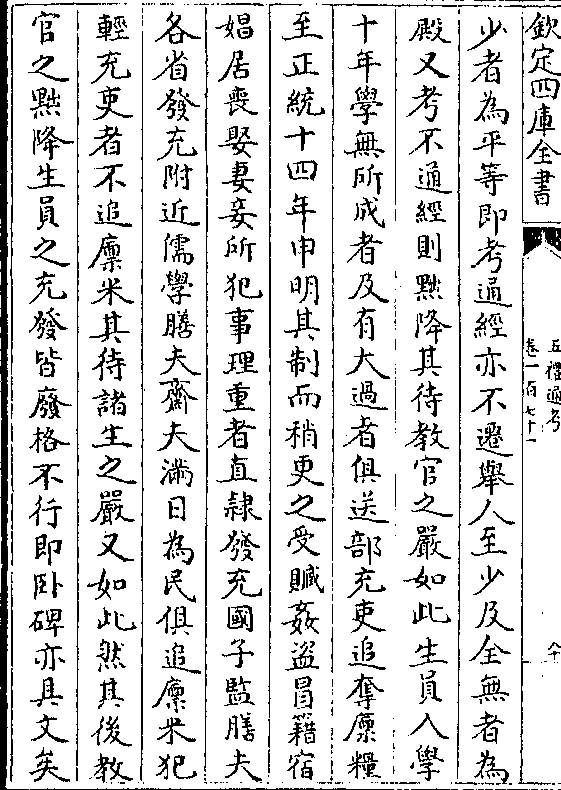 欽定四庫全書
五禮通考
卷一百七十一
少者為平等即考通經亦不遷舉人至少及全無者為
殿又考不通經則黜降其待教官之嚴如此生員入學
十年學無所成者及有大過者俱送部充吏追奪廩糧
至正統十四年申明其制而稍更之受贓姦盜冒籍宿
娼居喪娶妻妾所犯事理重者直隸發充國子監膳夫
各省發充附近儒學膳夫齋夫滿日為民俱追廩米犯
輕充吏者不追廩米其待諸生之嚴又如此然其後教
官之黜降生員之充發皆廢格不行即卧碑亦具文矣